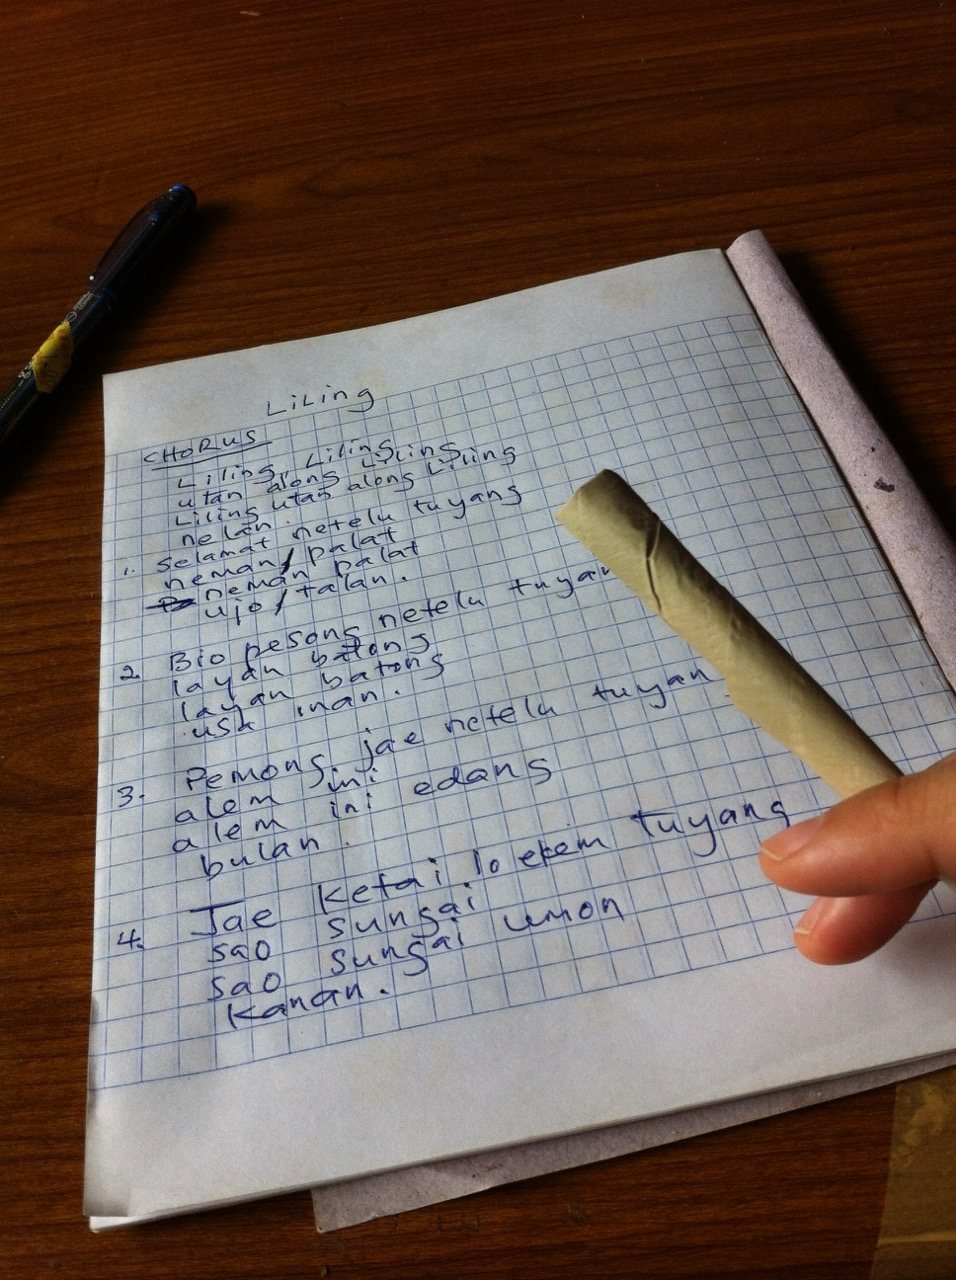 LiLing
CHORUS
Liling, Liling
utan along Liling
Liling utan along Liling
nelan.
1. selamat netelu tuyang
neman/palat
neman palat
ujo/talan.
2. Bio pesong netelu tuyan
layan batong
layan batong
usa inan.
3. Pemong jae netelu tuyan
alem ini
alem ini edang
bulan.
4. Jae Ketai lo ekem tuyang
sao sungai
sao sungai umon
Kanan.